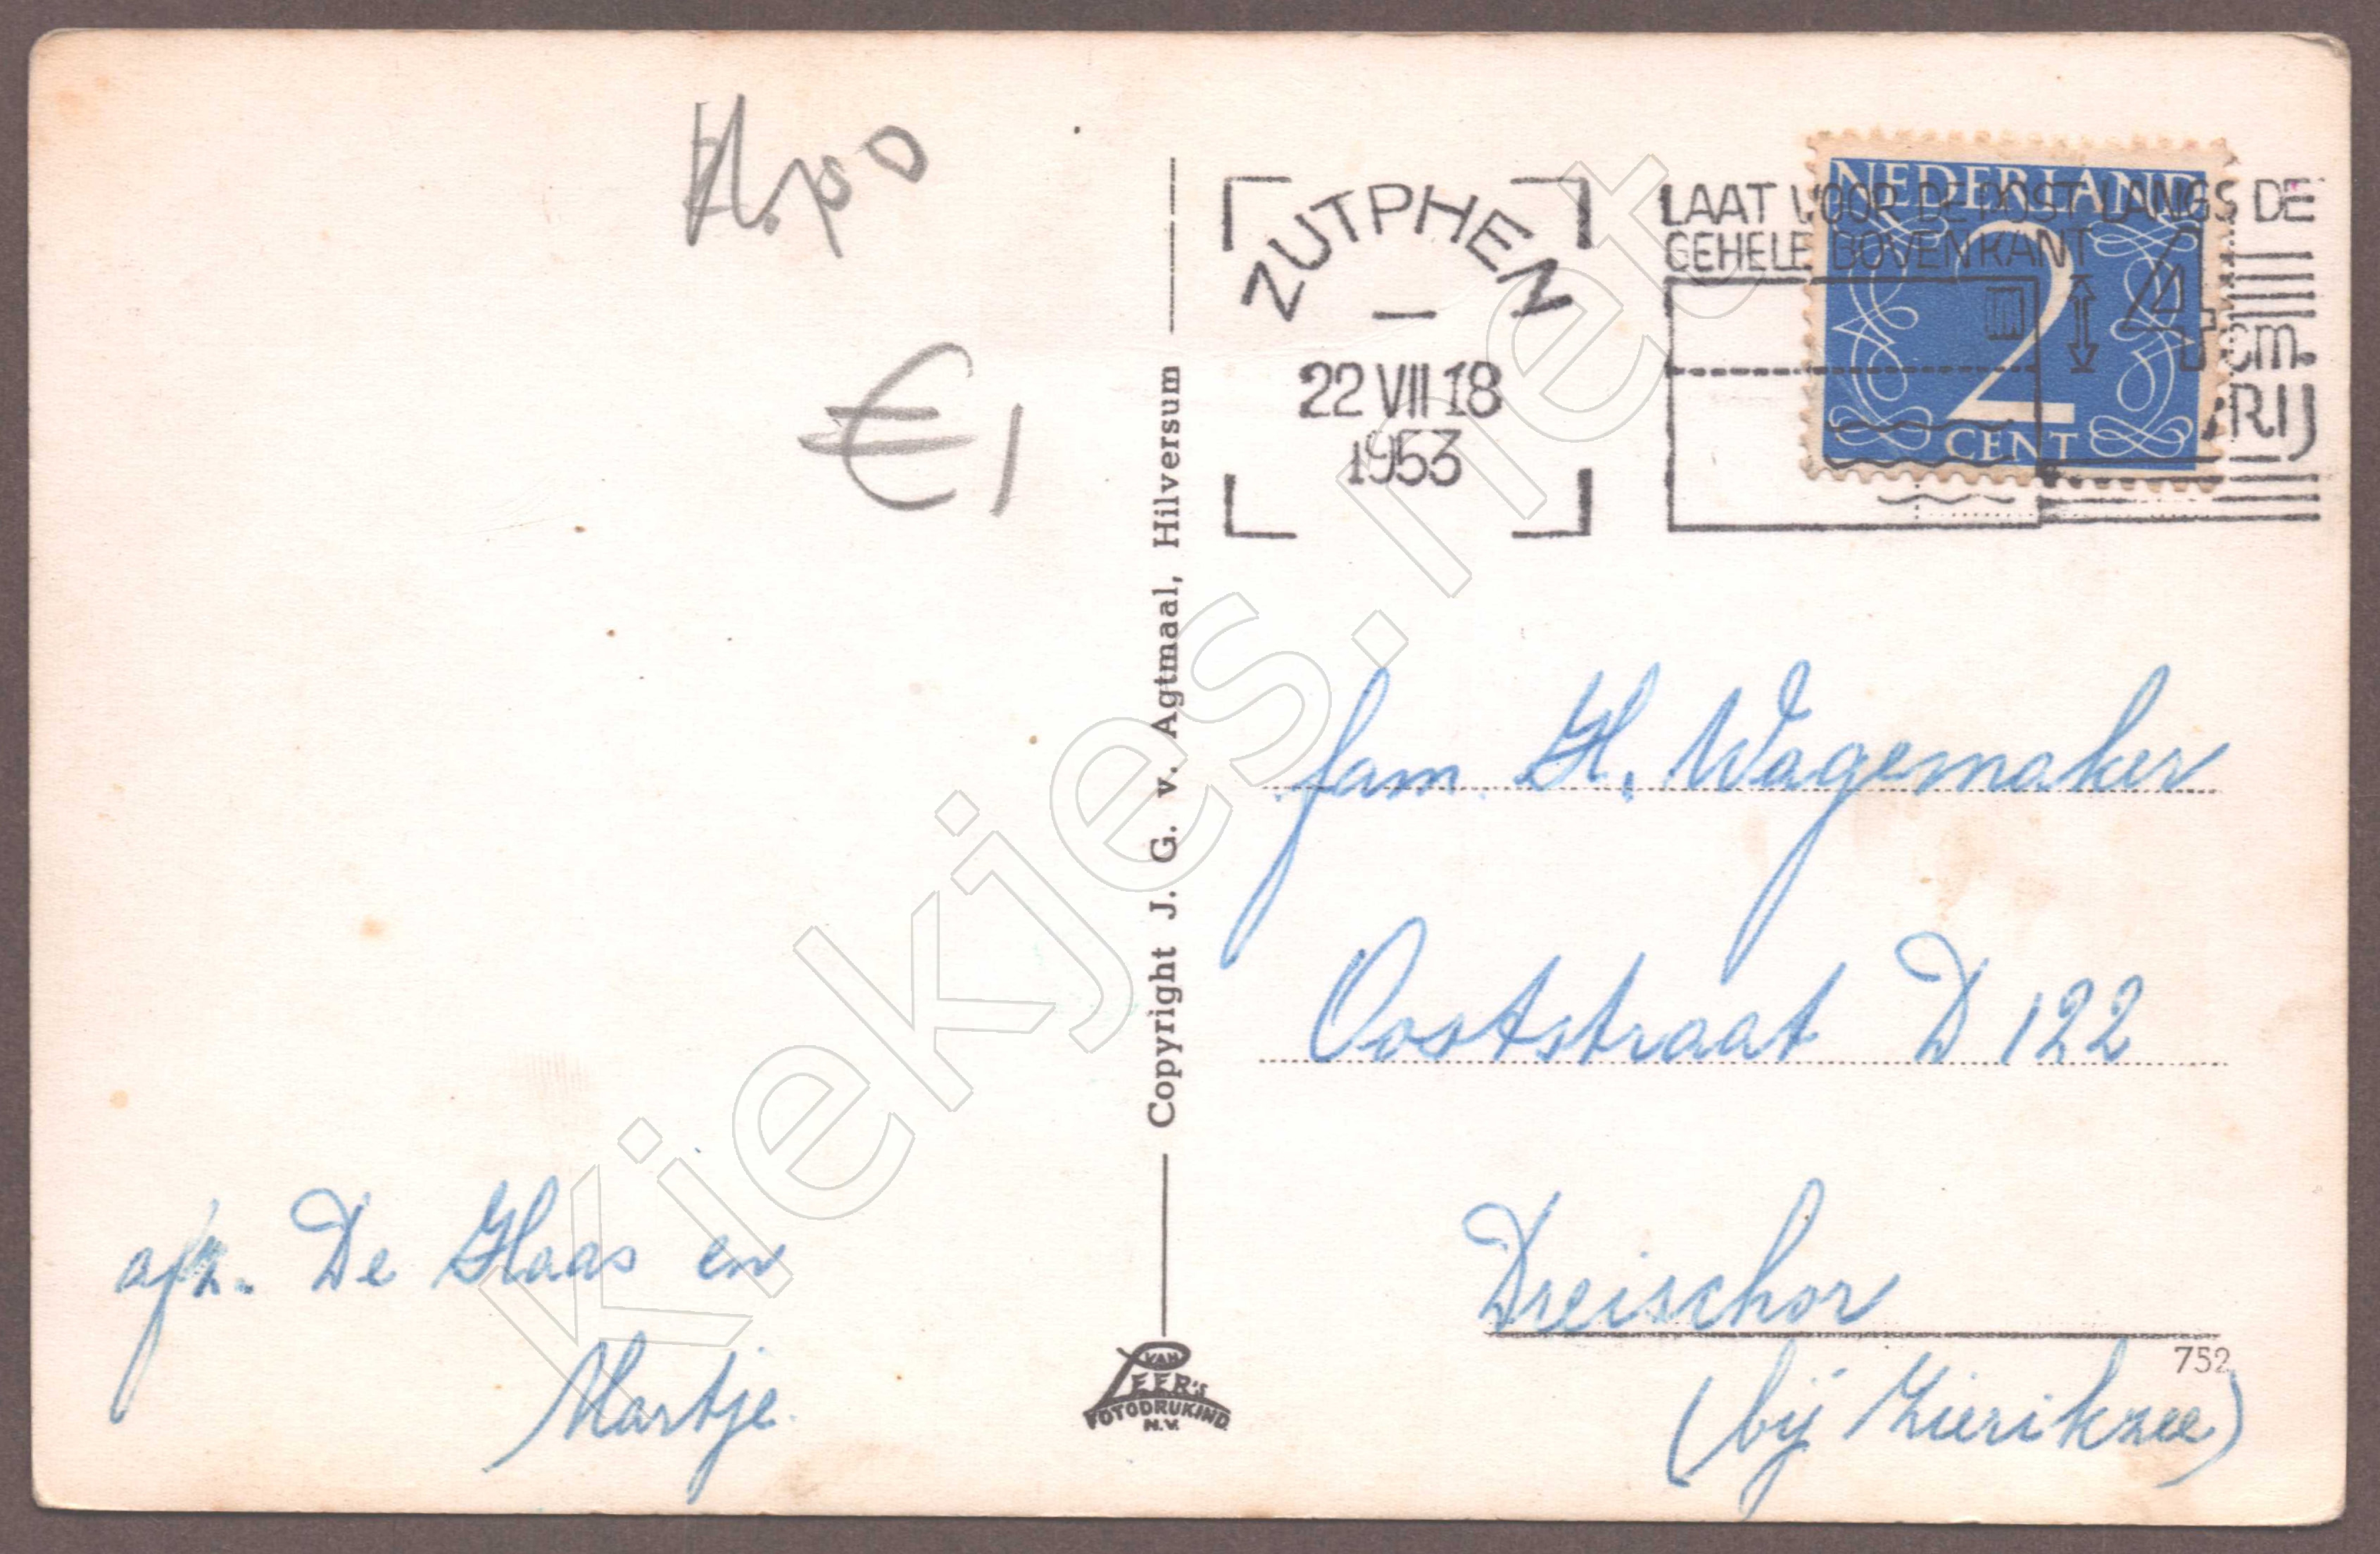 €1
afz. De Haas en
Martje.
Copyright J. G. v. Agtmaal, Hilversum
VAN
LEER'S
FOTODRUKIND.
N.V.
ZUTPHEN
22 VII 18
1953
LAAT VOOR DE POST LANGS DE
GEHELE BOVENKANT
4
cm.
VRIJ
NEDERLAND
2
CENT
fam. H. Wagemaker
Ooststraat D 122
Dreischor
752
(bij Zierikzee)
Kiekjes.net